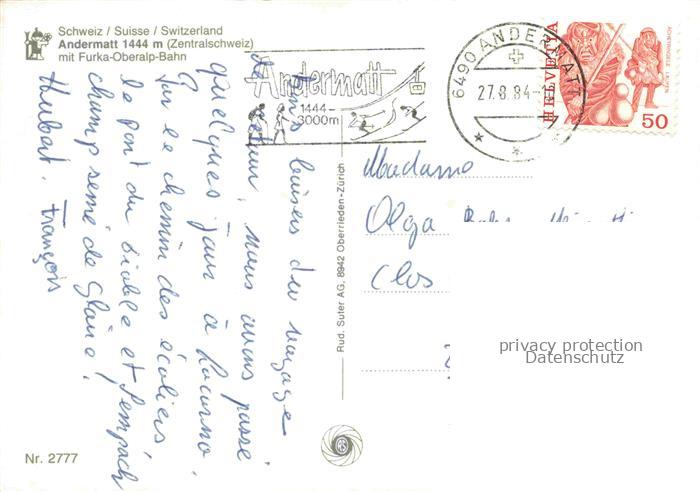 Schweiz / Suisse / Switzerland
Andermatt 1444 m (Zentralschweiz)
mit Furka-Oberalp-Bahn
Andermatt
1444–
3000m
6490 ANDERMATT
27.8.84-1
HELVETIA
50
baisers du voyage
de nous avons passé
quelques jours à Locarno.
Sur le chemin des écoliers,
le pont du diable et Sempach
champ semé de gloire!
Hubert. François
Rud. Suter AG, 8942 Oberrieden-Zürich
Madame
Olga
Clos
privacy protection
Datenschutz
Nr. 2777